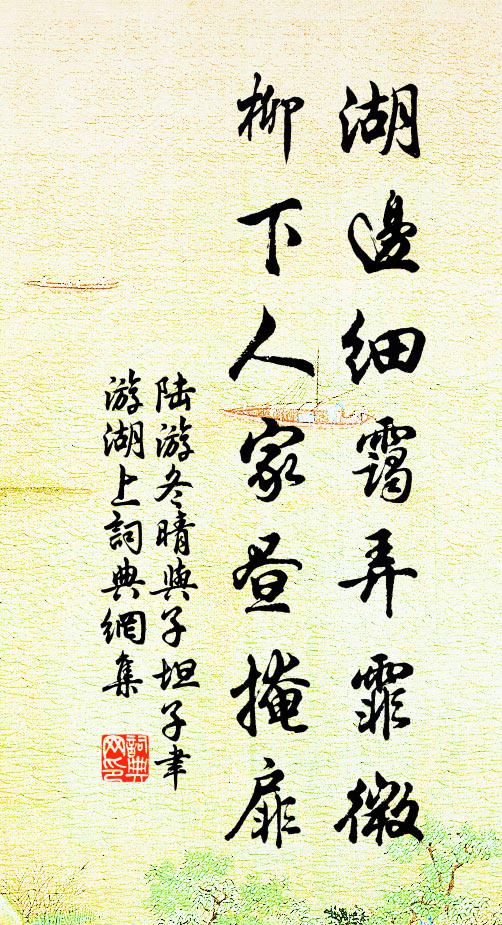 湖邊細靄弄霏微
柳下人家晝掩扉
陆游冬晴與子坦子聿
游湖上詞典網集
詞典网印